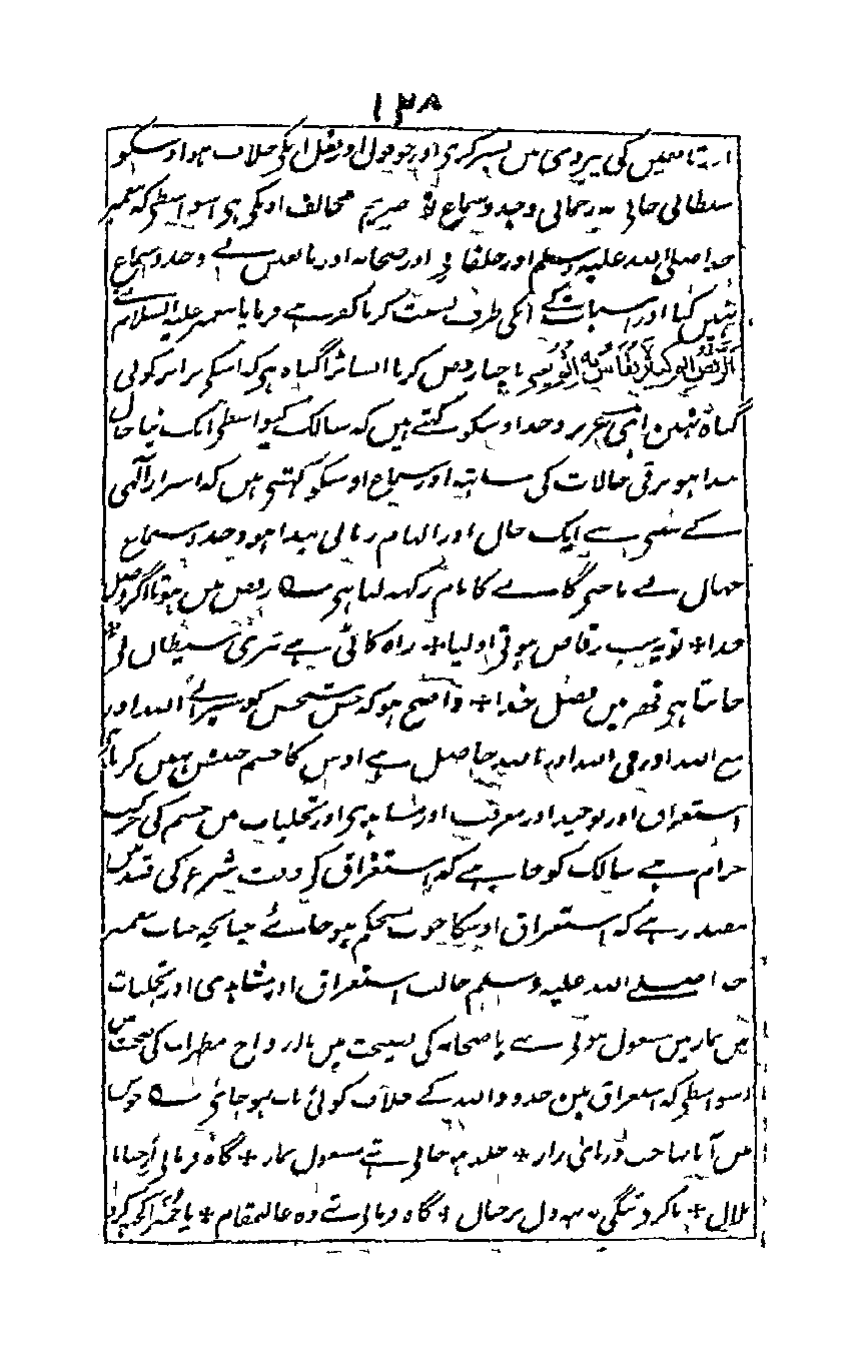 ۱۳۸
اور تابعین کی پیروی میں بسر کری اور جو قول اور فعل انکی خلاف ہو اوسکو
شیطانی جانی نہ رحمانی وجد و سماع صریح مخالف اونکی ہی اسواسطی کہ پیغمبر
خدا صلی اللہ علیہ وسلم اور خلفائی اور صحابہ اور تابعین نے وجد و سماع
نہیں کیا اور اسبات کے انکی طرف نسبت کرنا کفر ہے فرمایا پیغمبر علیہ السلام نے
ناچنا رقص کرنا ایسا بڑا گناہ ہی کہ اسکی برابر کوئی
گناہ نہین اتنی عزیز وجد اوسکو کہتے ہیں کہ سالک کیواسطی ایک نیا حال
پیدا ہو ترقی حالات کی ساتہہ اور سماع اوسکو کہتی ہیں کہ اسرار الٓہی
کے سننی سے ایک حال اور الہام ربانی پیدا ہو وجد و سماع
جہال نے ناچنی گانے کا نام رکہہ لیا ہی رقص میں ہوتا اگر وصل
خدا * تو یہ سب رقاص ہوتی اولیا * راہ کاٹی ہے تری شیطان نی *
جانتا ہی قہر میں فضل خدا * واضح ہو کہ جس شخص کو سیر الی اللہ اور
مع اللہ اور فی اللہ اور باللہ حاصل ہے اوس کا جسم جنبش نہیں کرتا
استغراق اور توحید اور معرفت اور مشاہدی اور تجلیات میں جسم کی حرکت
حرام ہے سالک کو چاہیے کہ استغراق کی وقت شرع کی قید میں
مقید رہے کہ استغراق اوسکا خوب مستحکم ہو جائے چنانچہ جناب پیغمبر
خدا صلے اللہ علیہ وسلم حالت استغراق اور مشاہدی اور تجلیات
میں نماز میں مشغول ہوتی تہے یا صحابہ کی نصیحت میں یا ازواج مطہرات کی صحبت میں
اسواسطی کہ استغراق مین حدود اللہ کے خلاف کوئی بات نہو جائی جوش
میں آتا جب دریائی راز * جلد ہو جاتی تہے مشغول نماز * گاہ فرماتی ارحنا یا
بلال * تا کرو تنگی نہ دل پر خیال * گاہ فرماتی تہے وہ عالیمقام * یا حُمَیرا